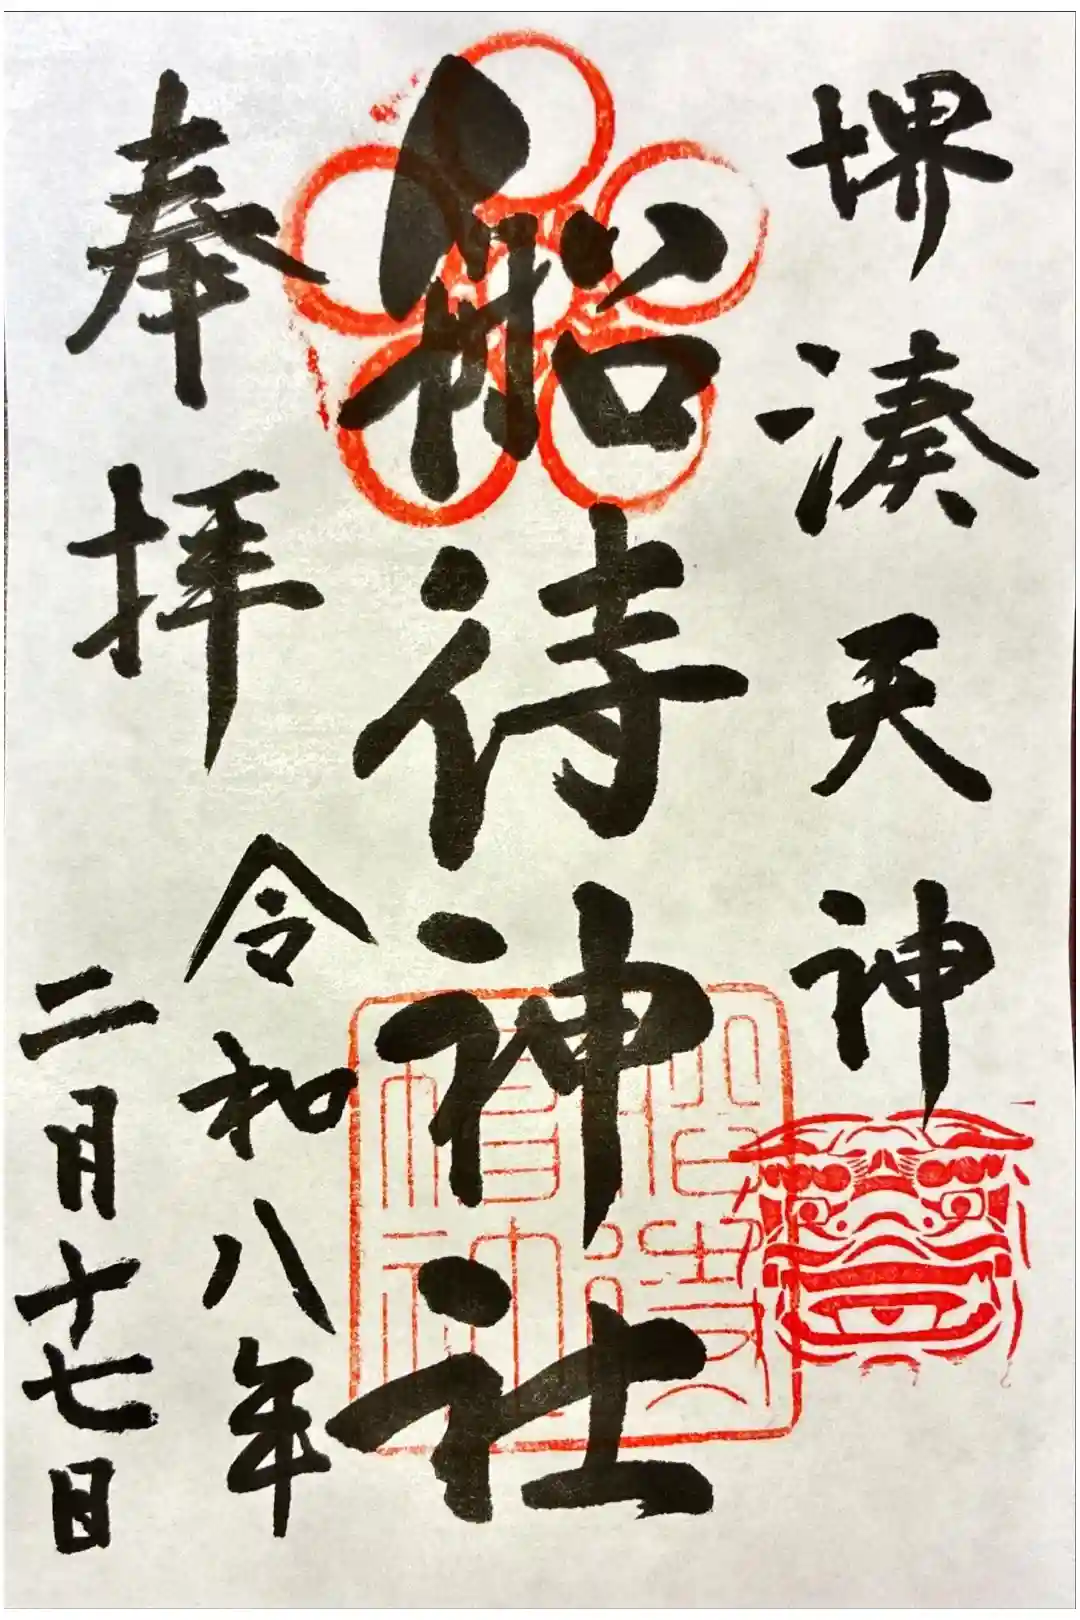 堺湊天神
船待神社
奉拝
令和八年
二月十七日